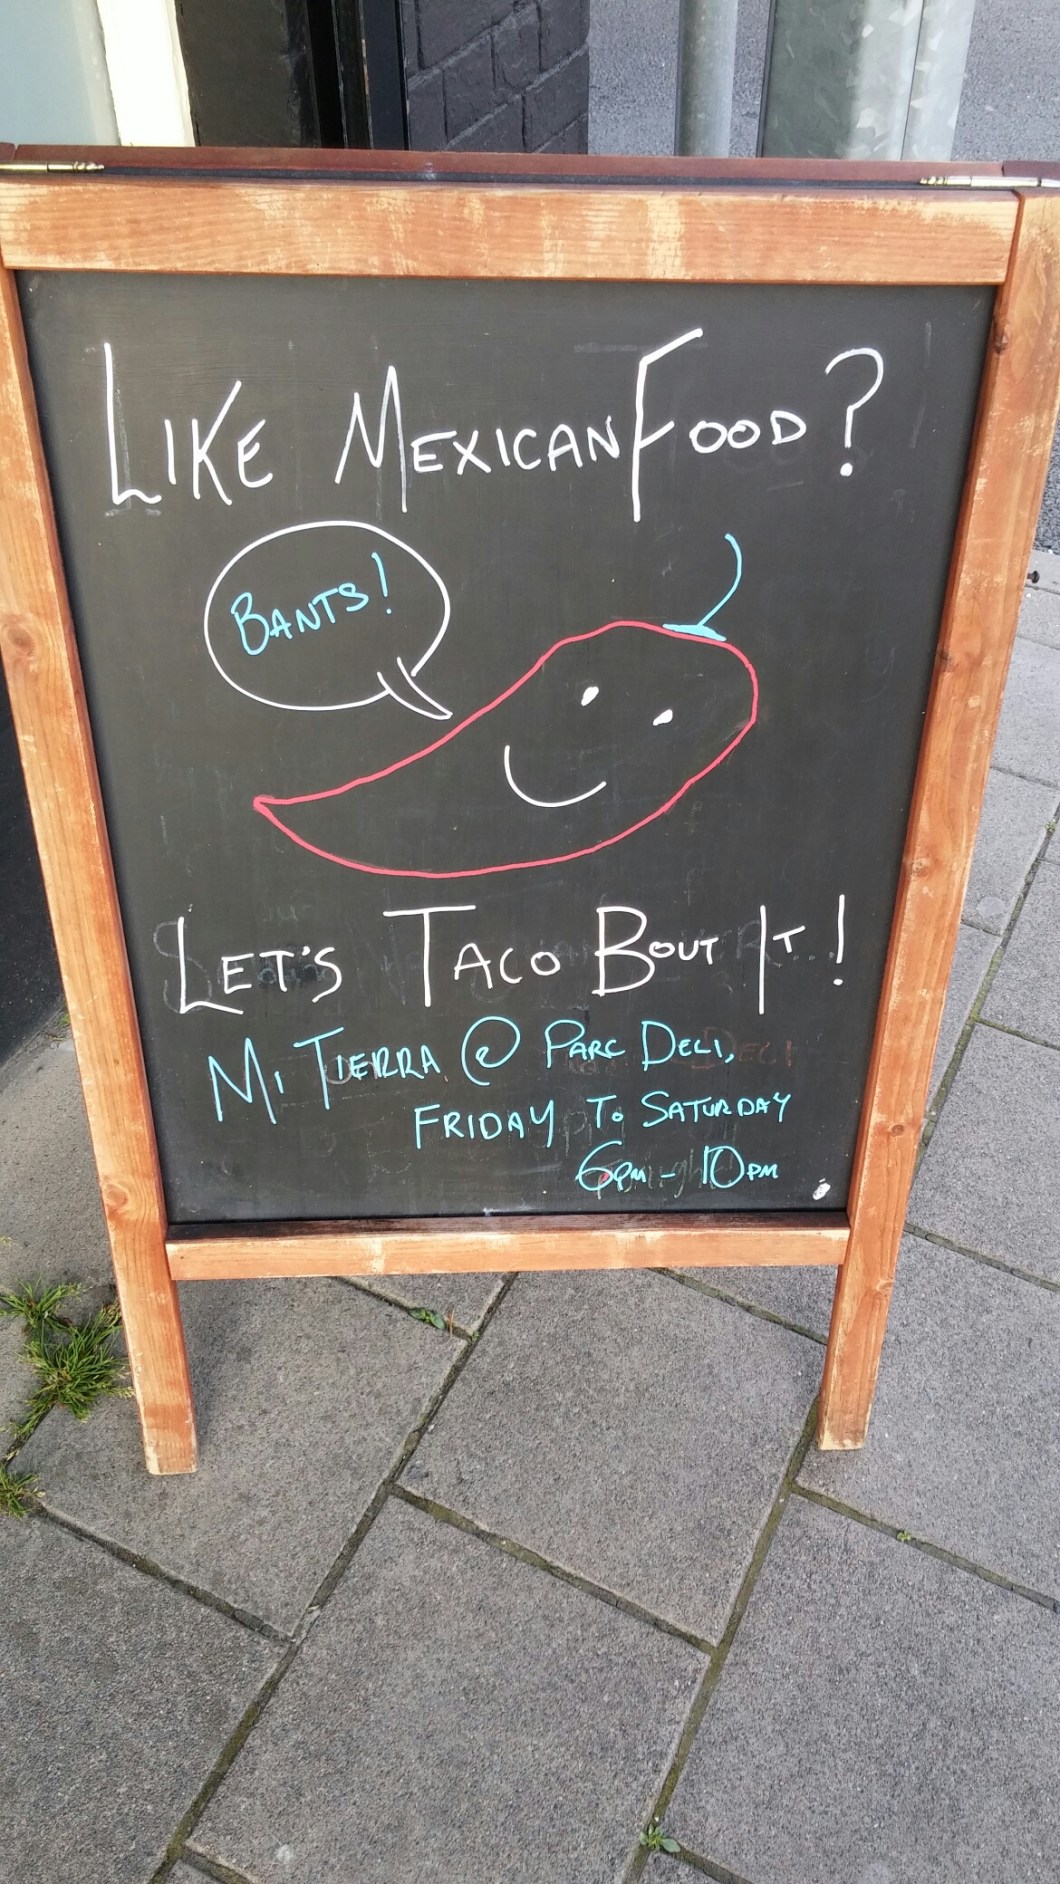 LIKE MEXICAN FOOD?
BANTS!
LET'S TACO BOUT IT!
MI TIERRA @ PARC DELI,
FRIDAY TO SATURDAY
6PM - 10PM